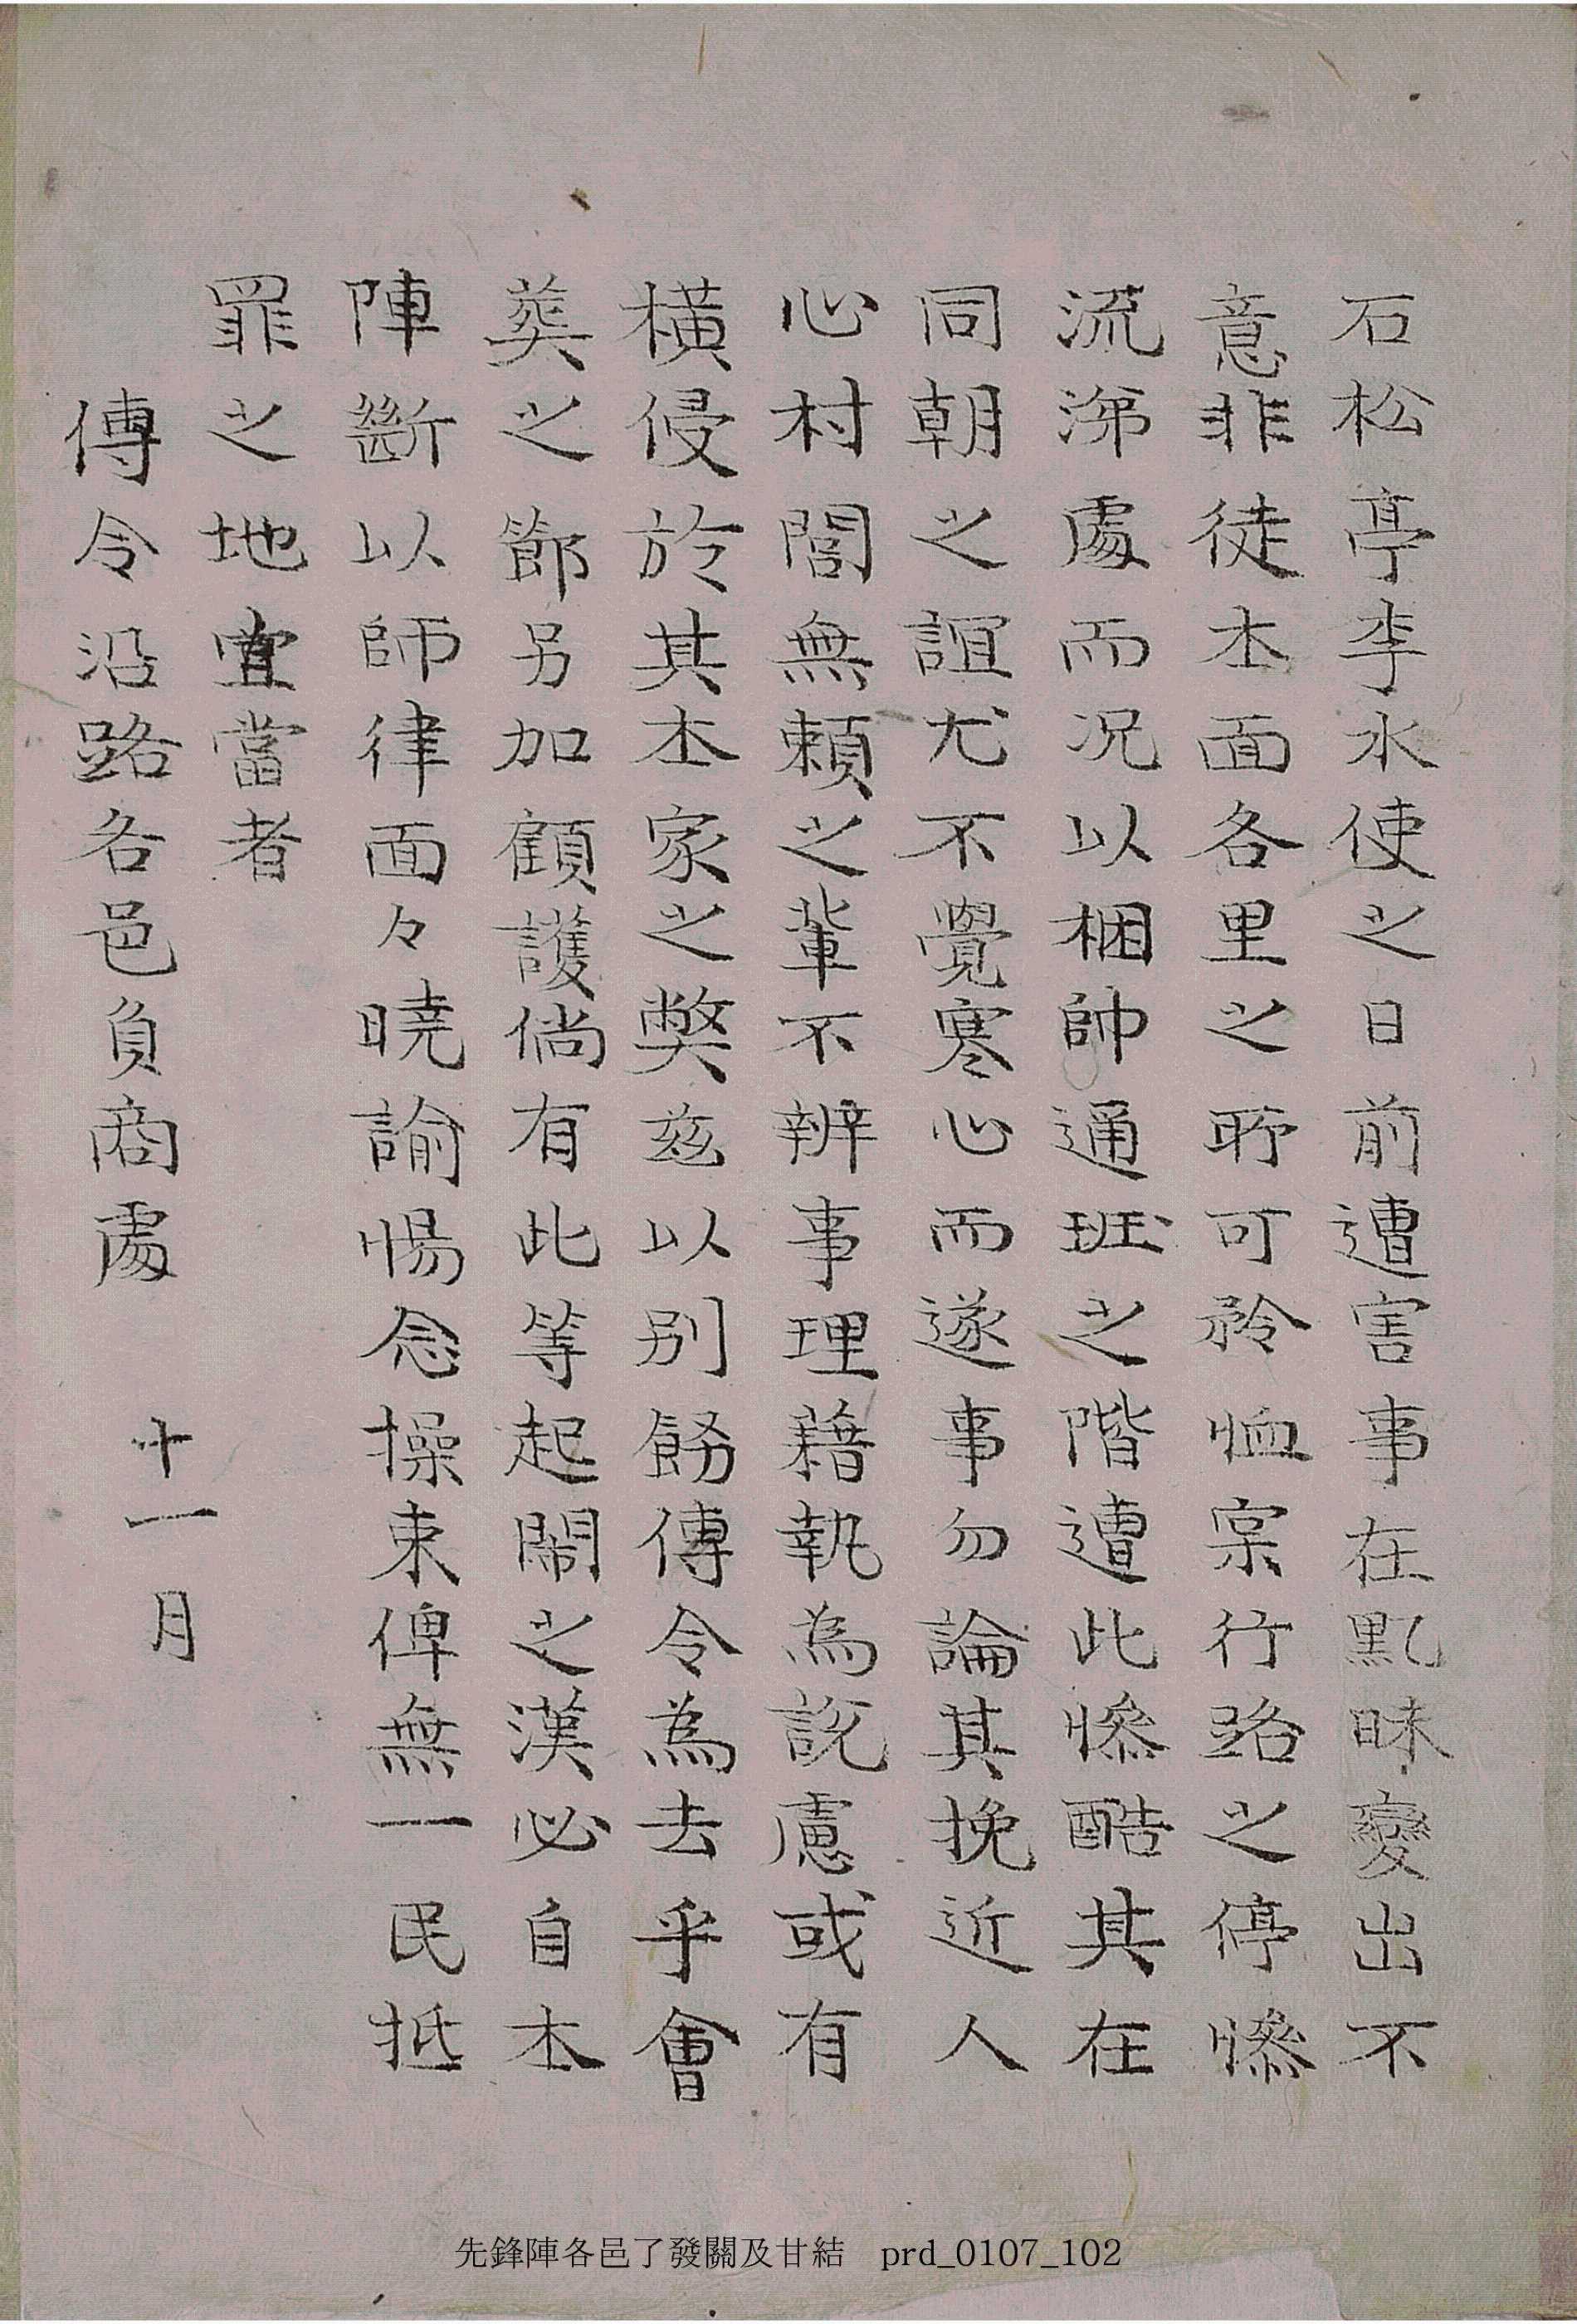 石松亭李水使之日前遭害事在黑昧變出不
意非徒本面各里之所可矜恤寔行路之停慘
流涕處而况以梱帥通班之階遭此慘酷其在
同朝之誼尤不覺寒心而遂事勿論其挽近人
心村閭無賴之輩不辨事理藉執為說慮或有
橫侵於其本家之獘玆以別飭傳令為去乎會
葬之節另加顧護倘有此等起鬧之漢必自本
陣斷以師律面々曉諭惕念操束俾無一民抵
罪之地宜當者
傳令沿路各邑負商處 十一月
先鋒陣各邑了發關及甘結 prd_0107_102